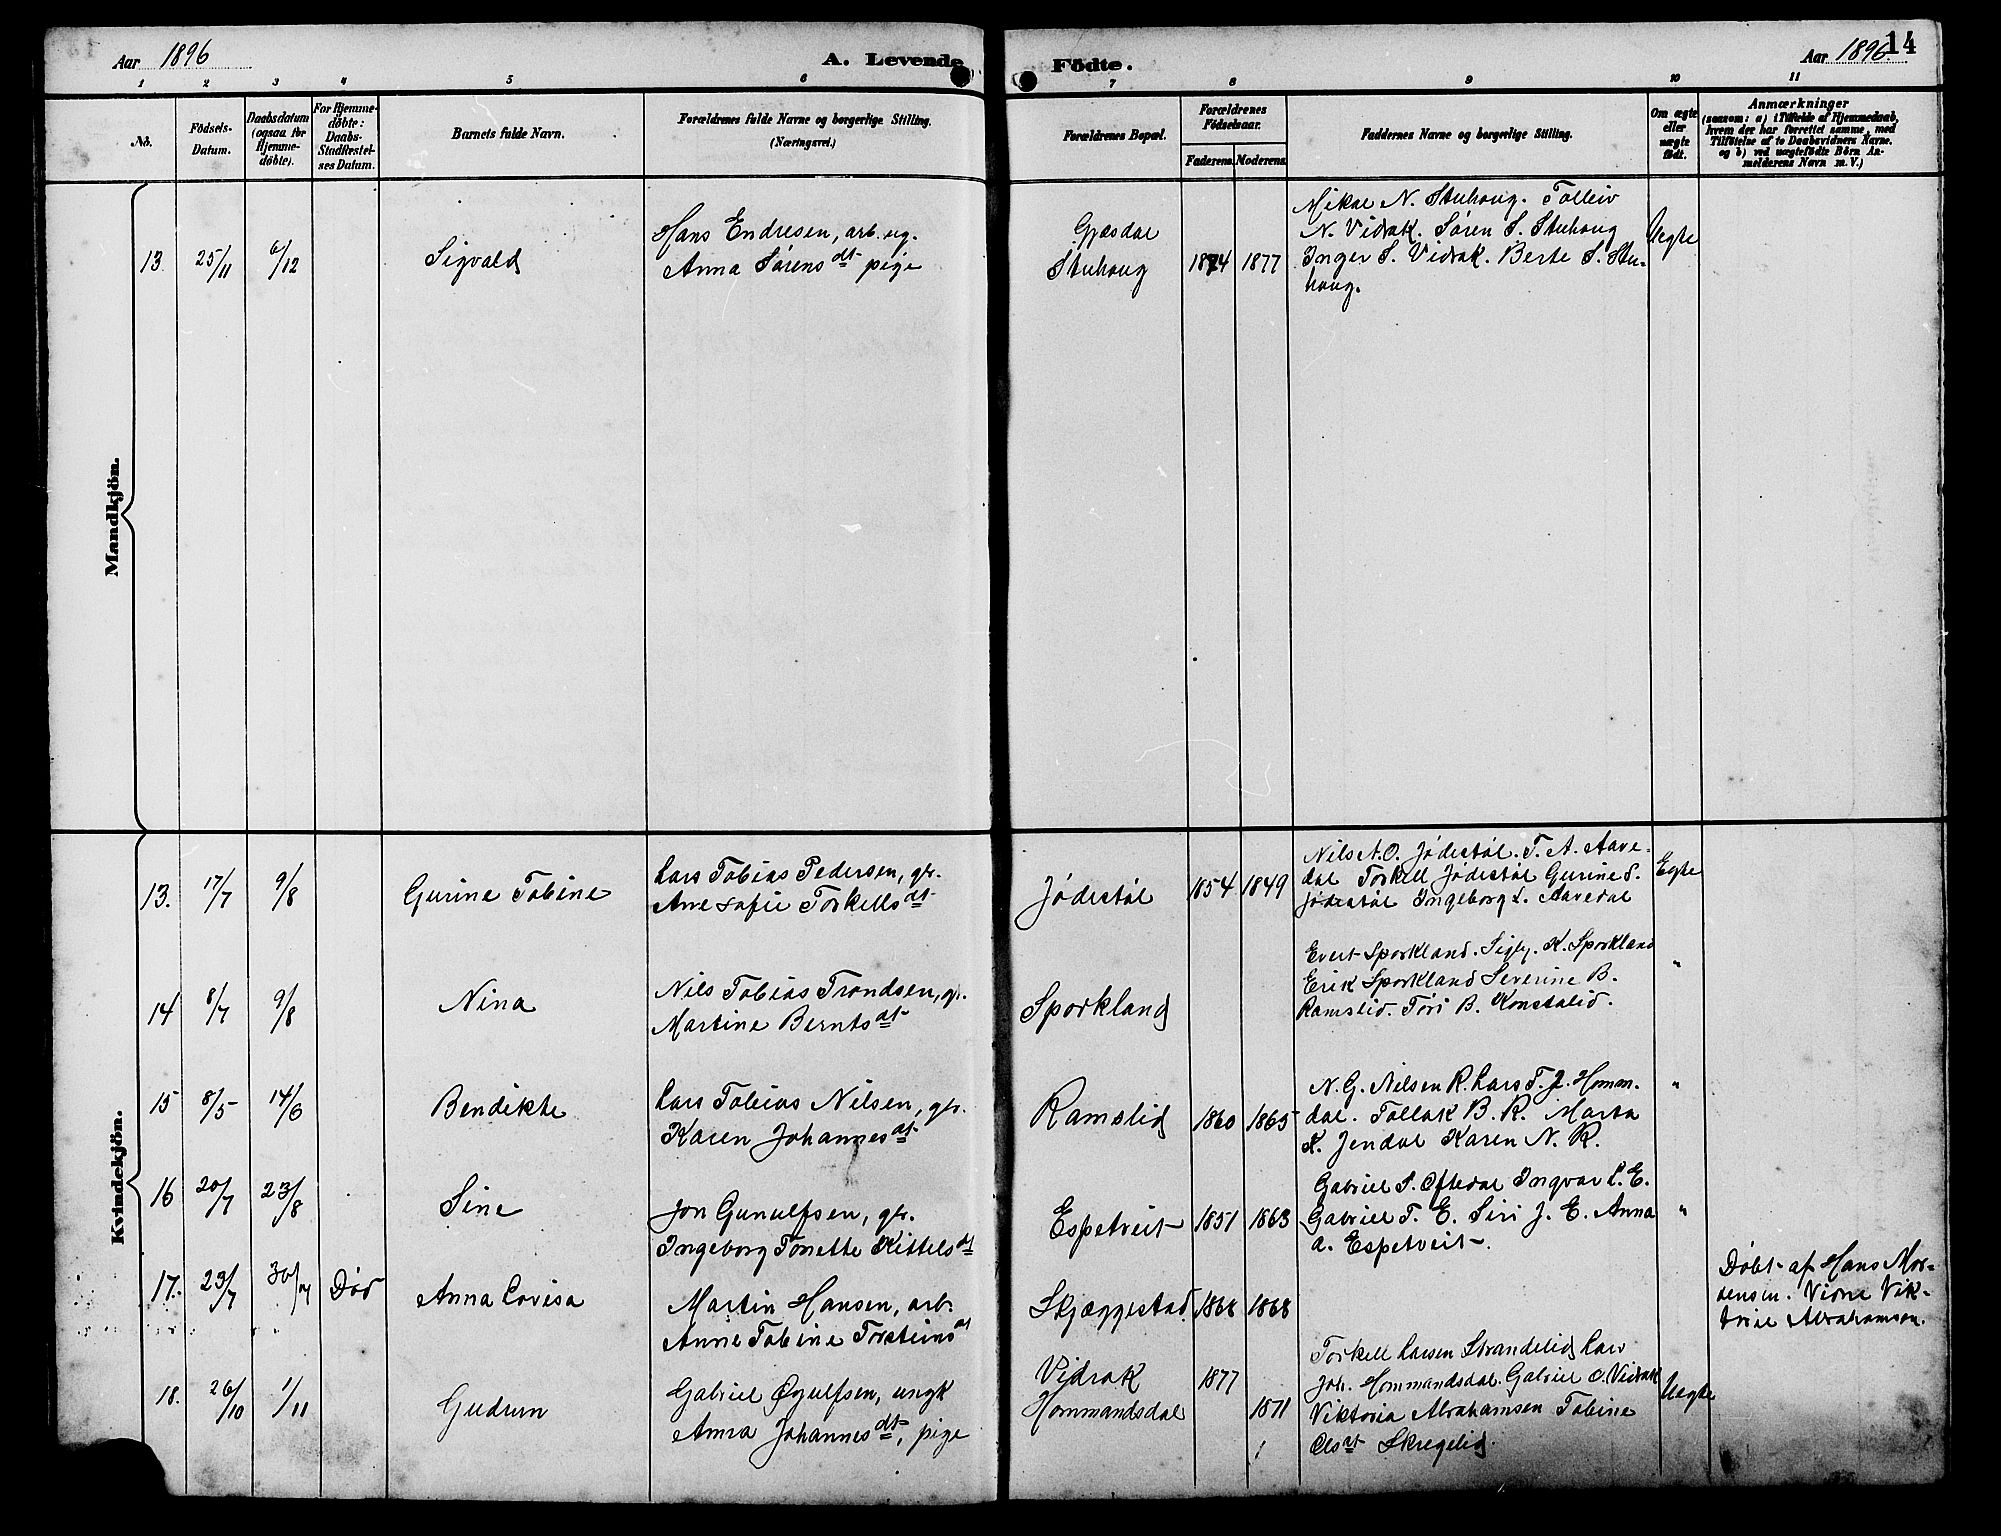 Aar 1896
A. Levende Födte.
Aar 1896
14
1 2 3 4 5 6 7 8 9 10 11
No.
Födsels-Datum.
Daabsdatum (ogsaa for Hjemme-döbte).
For Hjemme-döbte: Daabs-Stadfæstel-ses Datum.
Barnets fulde Navn.
Forældrenes fulde Navne og borgerlige Stilling.
(Næringsvei.)
Forældrenes Bopæl.
Forældrenes Födselsaar.
Faderens. Moderens.
Faddernes Navne og borgerlige Stilling.
Om ægte eller uægte födt.
Anmærkninger
(saasom: a) i Tilfælde af Hjemmedaab,
hvem der har forrettet samme, med
Tilföielse af to Daabsvidners Navne.
og b) ved uægtefödte Börn An-
melderens Navn m. V.)
Mandkjön.
13. 25/11 6/12 Sigvald
Hans Endresen, arb. ug.
Anna Sørensdt pige
Gjæsdal
Stuhoug 1874 1877
Mikal N. Stuhoug. Tolleiv
N. Vidrak. Søren S. Stuhoug
Inger S. Vidrak. Berte S. Stu-
houg.
Uegte
Kvindekjön.
13. 17/7 9/8 Gurine Tobine
Lars Tobias Pedersen, gr.
Ane Sofie Torkellsdt
Jødestøl 1854 1849
Nils A. O. Jødestøl. T. A. Aave-
dal Torkell Jødestøl Gurine S.
Jødestøl Ingeborg L. Aavedal
Egte
14 8/7 9/8 Nina
Nils Tobias Trondsen, gr.
Martine Berntsdt
Sporkland
Evert Sporkland. Sigby. K. Sporkland
Erik Sporkland Severine B.
Ramslid. Tøri B. Konstalid.
"
15 8/5 14/6 Bendikte
Lars Tobias Nilsen, gr.
Karen Johannesdt
Ramslid 1860 1865
N. G. Nilsen R. Lars T. J. Homm-
dal. Tollak B. R. Marta
K. Jendal Karen N. R.
"
16 20/7 23/8 Sine
Jon Gunulfsen, gr.
Ingeborg Tonette Kittelsdt
Espetveit 1851 1863
Gabriel S. Oftedal Ingvar L. E.
Gabriel T. E. Siri J. E. Anna
A. Espetveit.
"
17. 23/7 30/7 Død Anna Lovisa
Martin Hansen, arb.
Anne Tobine Torsteinsdt
Skjæggestad. 1868 1868
Døbt af Hans Mor-
tensen. Vidne Vik-
toria Abrahamsen.
18. 26/10 1/11 Gudrun
Gabriel Øgulfsen, ungk
Anna Johannesdt, pige
Vidrak 1877
Hommandsdal 1871
Torkell Larsen Strandelid Lars
Joh. Hommandsdal. Gabriel O. Vidrak
Viktoria Abrahamsen Tobine
Olsdt Skregelid.
Uegte